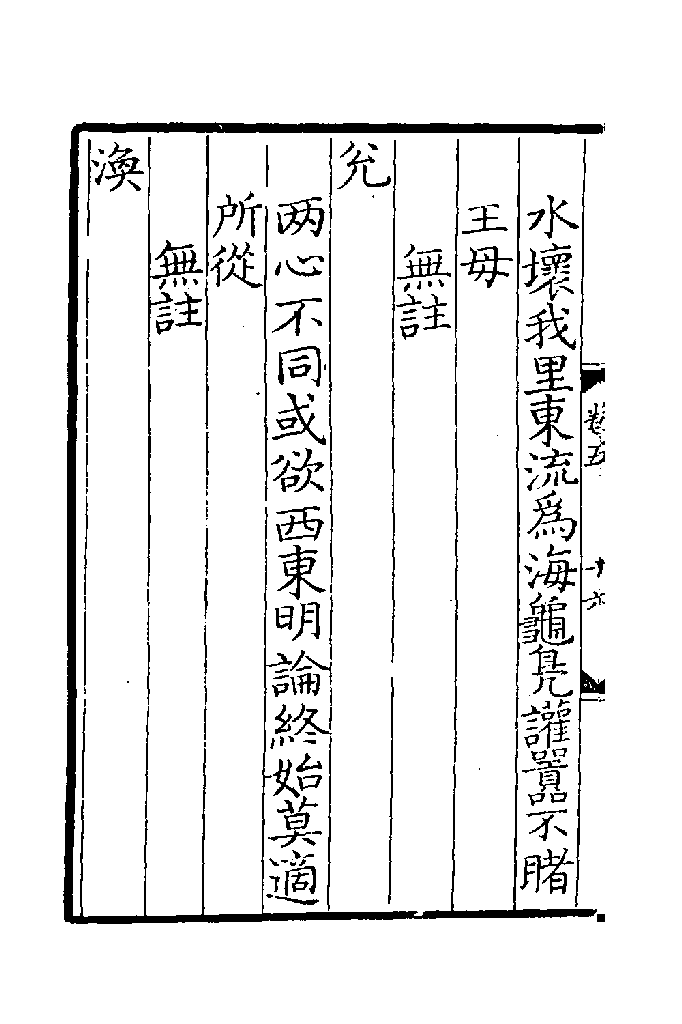 水壞我里東流爲海龜鳧讙嚻不睹
王母
無註
兊
两心不同或欲西東明論終始莫適
所從
無註
渙
卷五
十六